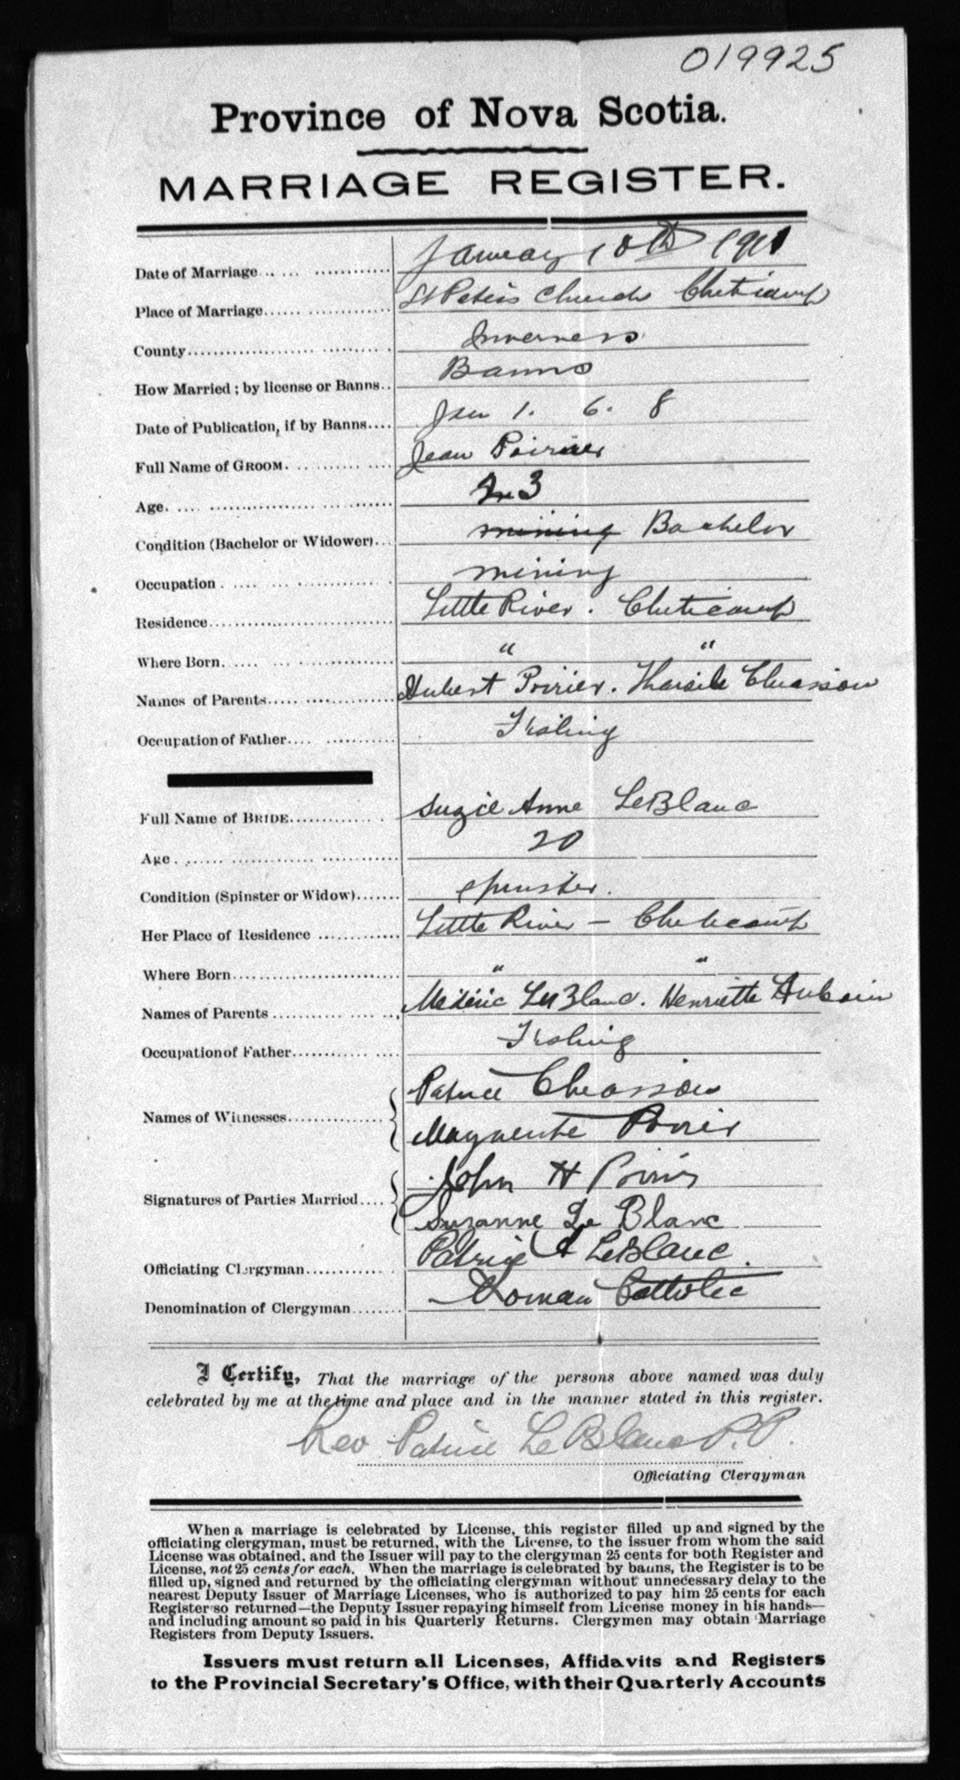 019925
Province of Nova Scotia.
MARRIAGE REGISTER.
Date of Marriage January 10th 1911
Place of Marriage St Peters Church Cheticamp
County Inverness
How Married; by license or Banns Banns
Date of Publication, if by Banns Jan 1. 6. 8
Full Name of GROOM. Jean Poirier
Age. 23
Condition (Bachelor or Widower) mining Bachelor
Occupation mining
Residence Little River. Cheticamp
Where Born. " "
Names of Parents Hubert Poirier. Tharsile Chiasson
Occupation of Father Fishing
Full Name of BRIDE Suzie Anne LeBlanc
Age 20
Condition (Spinster or Widow) spinster.
Her Place of Residence Little River - Cheticamp
Where Born " "
Names of Parents Mederic LeBlanc. Henriette Aucoin
Occupation of Father Fishing
Names of Witnesses Patrice Chiasson
Marguerite Poirier
Signatures of Parties Married John H Poirier
Suzanne Le Blanc
Officiating Clergyman LeBlanc
Denomination of Clergyman Roman Catholic
I Certify, That the marriage of the persons above named was duly
celebrated by me at the time and place and in the manner stated in this register.
Rev Patrice LeBlanc P.P.
Officiating Clergyman
When a marriage is celebrated by License, this register filled up and signed by the
officiating clergyman, must be returned, with the License, to the issuer from whom the said
License was obtained, and the Issuer will pay to the clergyman 25 cents for both Register and
License, not 25 cents for each. When the marriage is celebrated by banns, the Register is to be
filled up, signed and returned by the officiating clergyman without unnecessary delay to the
nearest Deputy Issuer of Marriage Licenses, who is authorized to pay him 25 cents for each
Register so returned—the Deputy Issuer repaying himself from License money in his hands—
and including amount so paid in his Quarterly Returns. Clergymen may obtain Marriage
Registers from Deputy Issuers.
Issuers must return all Licenses, Affidavits and Registers
to the Provincial Secretary's Office, with their Quarterly Accounts